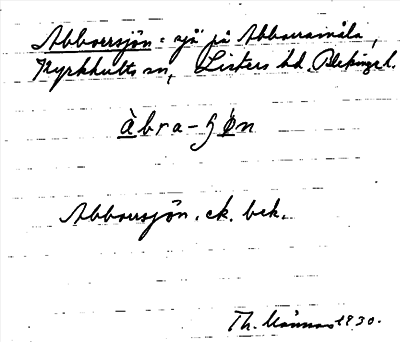 Abborrsjön = sjö på Abborramåla,
Kyrkhults sn, Listers hd, Blekinge l.
àbra-ʃø̀n
Abborrsjön. ek. bek.
Th. 1930.